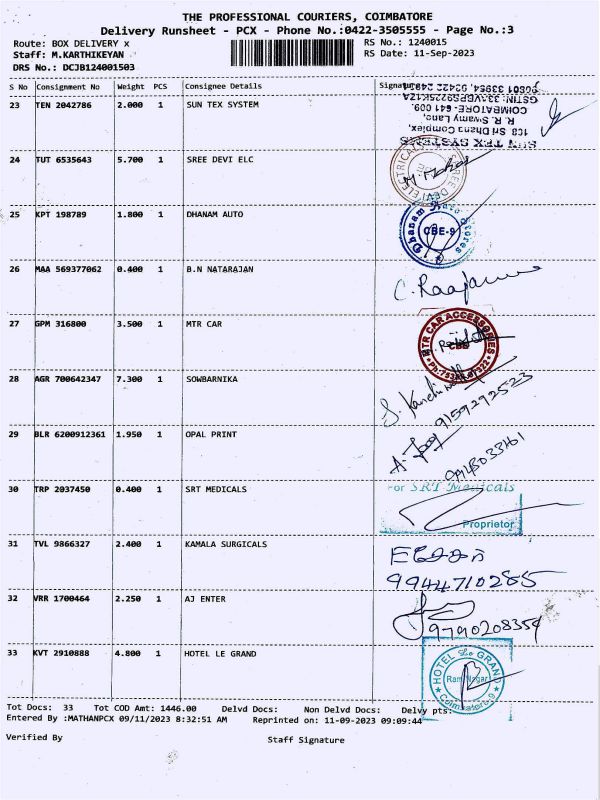 THE PROFESSIONAL COURIERS, COIMBATORE
Delivery Runsheet - PCX - Phone No.:0422-3505555 - Page No.:3
Route: BOX DELIVERY x
RS No.: 1240015
Staff: M.KARTHIKEYAN
RS Date: 11-Sep-2023
DRS No.: DCJB124001503
S No Consignment No Weight PCS Consignee Details Signature
23 TEN 2042786 2.000 1 SUN TEX SYSTEM
SUN TEX SYSTEMS
108 Sri Dhana Complex,
R. R. Swamy Lane,
COIMBATORE- 641 009.
24 TUT 6535643 5.700 1 SREE DEVI ELC
SREE DEVI ELECTRICAL
25 KPT 198789 1.800 1 DHANAM AUTO
Dhanam Auto Stores
CBE-9
26 MAA 569377062 0.400 1 B.N NATARAJAN
27 GPM 316800 3.500 1 MTR CAR
MTR CAR ACCESSORIES
CBE
28 AGR 700642347 7.300 1 SOWBARNIKA
9159292523
29 BLR 6200912361 1.950 1 OPAL PRINT
30 TRP 2037450 0.400 1 SRT MEDICALS
For SRT Medicals
Proprietor
31 TVL 9866327 2.400 1 KAMALA SURGICALS
9944710285
32 VRR 1700464 2.250 1 AJ ENTER
9790208354
33 KVT 2910888 4.800 1 HOTEL LE GRAND
HOTEL Le GRAND
Ram Nagar
Coimbatore-9
Tot Docs: 33 Tot COD Amt: 1446.00 Delvd Docs: Non Delvd Docs: Delvy pts:
Entered By :MATHANPCX 09/11/2023 8:32:51 AM Reprinted on: 11-09-2023 09:09:44
Verified By Staff Signature